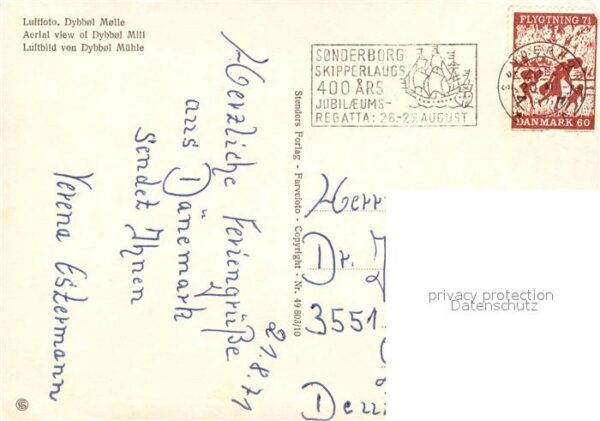 Luftfoto. Dybbøl Mølle
Aerial view of Dybbøl Mill
Luftbild von Dybbøl Mühle
SØNDERBORG
SKIPPERLAUGS
400 ÅRS
JUBILÆUMS-
REGATTA: 26-29 AUGUST
FLYGTNING 71
DANMARK 60
Stenders Forlag - Farvefoto - Copyright - Nr. 49 803/10
21.8.71
Herzliche Feriengrüße
aus Dänemark
sendet Ihnen
Verena Estermann
Herr
Dr.
3551
privacy protection
Datenschutz